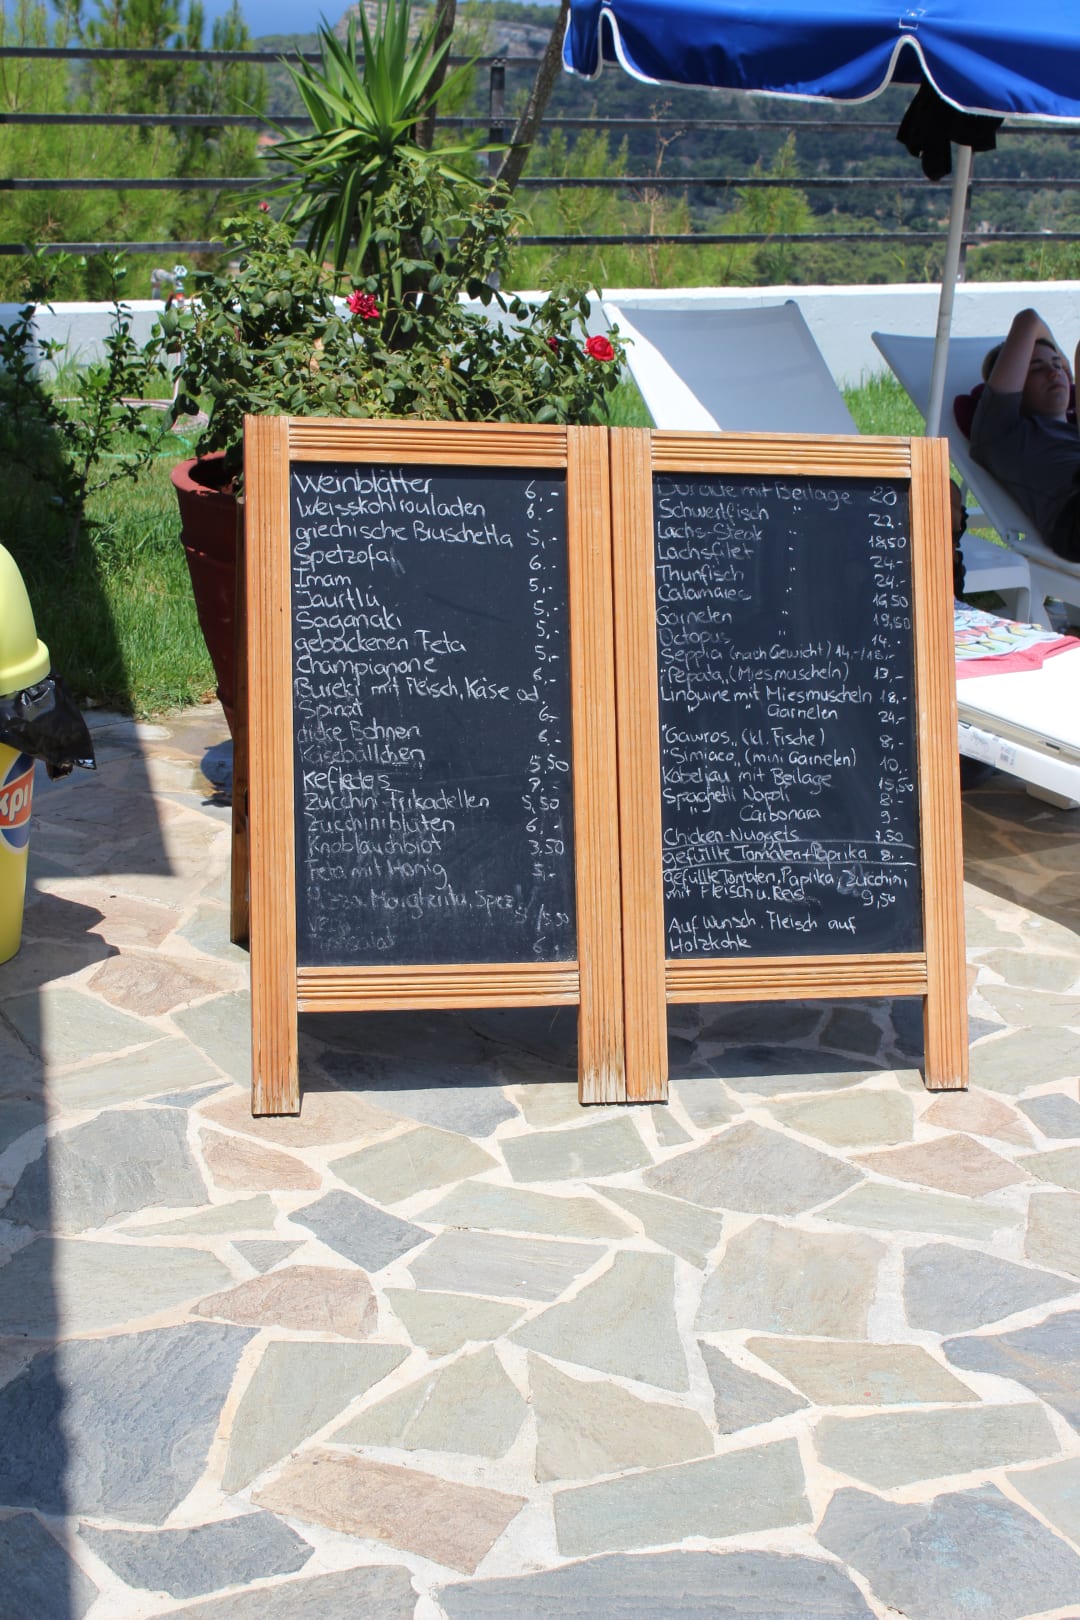 Weinblätter 6,-
Weisskohlrouladen 6.-
griechische Bruschetta 5,-
Spetzofai 6.-
Imam 5,-
Jaurtlu 5,-
Saganaki 5,-
gebackenen Feta 5,-
Champignone 6,-
Bureki mit Fleisch, Käse od.
Spinat 6,-
dicke Bohnen 6.-
Käsebällchen 5,50
Kefledeis 7,-
Zucchini-Frikadellen 5,50
Zucchiniblüten 6,-
Knoblauchbrot 3.50
Feta mit Honig 5,-
Pizza Margherita, Spez.
5,50
6,-
Dorade mit Beilage 20
Schwertfisch " 22,-
Lachs-Steak " 18,50
Lachsfilet " 24,-
Thunfisch " 24,-
Calamaies " 16,50
Garnelen " 19,50
Octopus " 14,-
Seppia (nach Gewicht) 14,-/18,-
"Pepata" (Miesmuscheln) 13,-
Linguine mit Miesmuscheln 18,-
" " Garnelen 24,-
"Gawros" (kl. Fische) 8,-
"Simiaco" (mini Garnelen) 10,-
Kabeljau mit Beilage 15,50
Spaghetti Napoli 8,-
" Carbonara 9.-
Chicken-Nuggets 7.50
gefüllte Tomaten+Paprika 8,-
gefüllte Tomaten, Paprika, Zucchini
mit Fleisch u. Reis 9,50
Auf Wunsch. Fleisch auf
Holzkohle